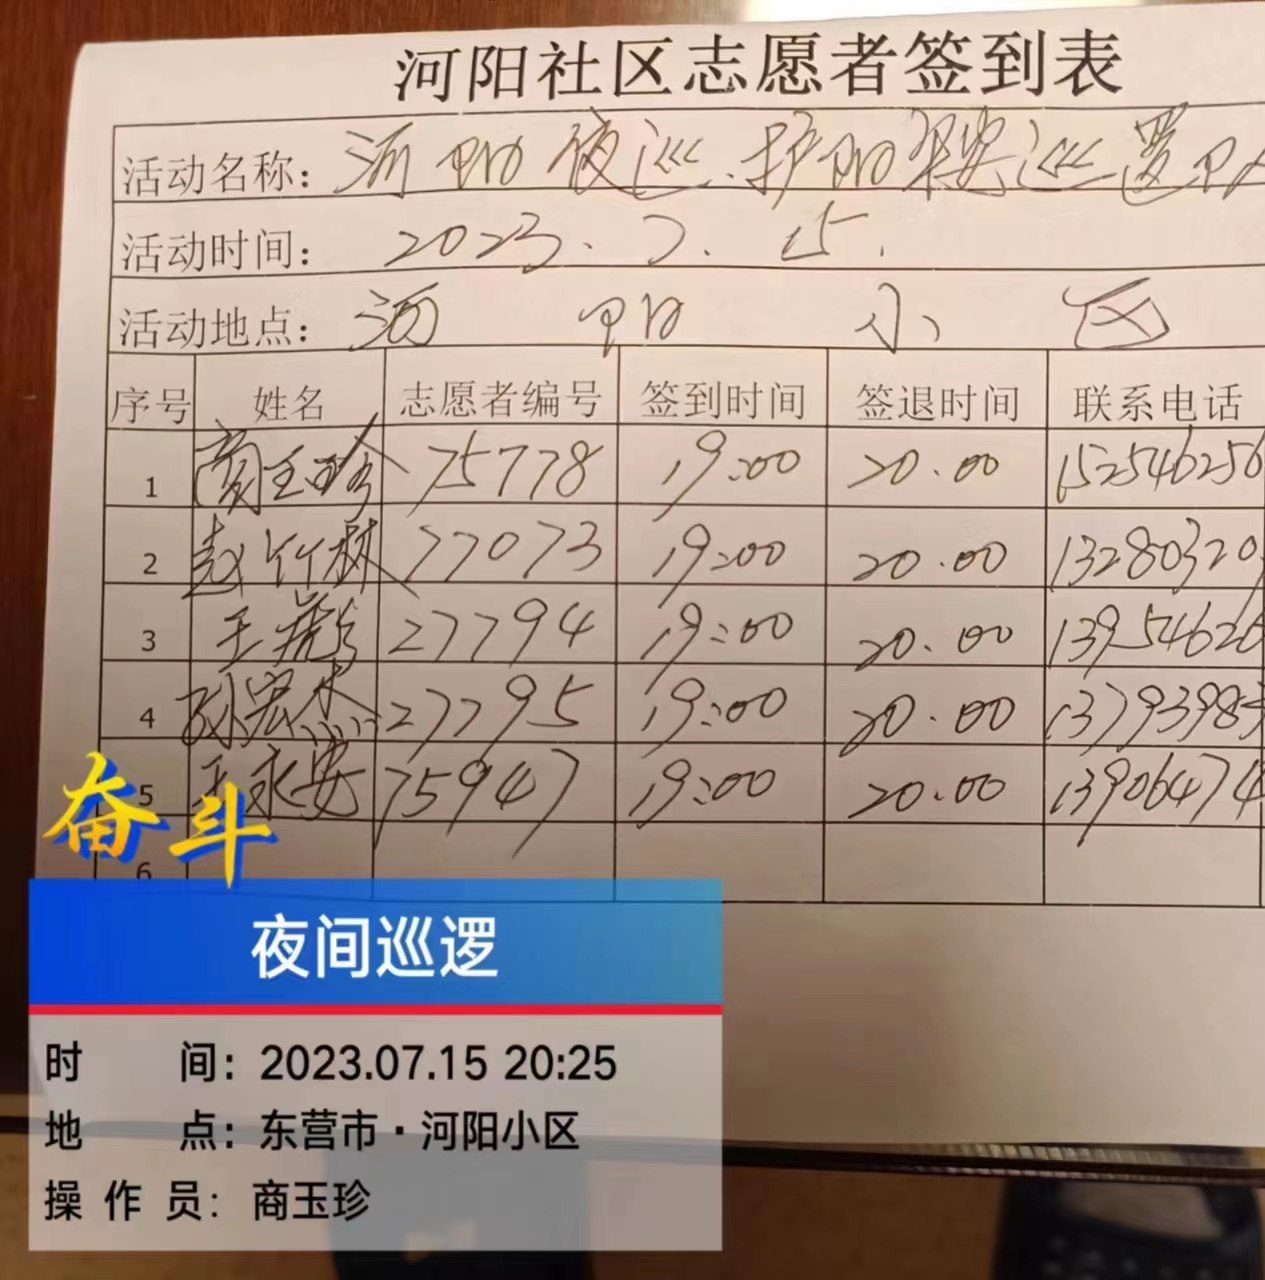 河阳社区志愿者签到表
活动名称：河阳夜巡.护阳平安巡逻队
活动时间：2023.7.15.
活动地点：河阳小区
序号 姓名 志愿者编号 签到时间 签退时间 联系电话
1 商玉珍 75778 19:00 20.00 152546256
2 赵竹林 77073 19:00 20.00 13280320
3 王 27794 19:00 20.00 13954626
4 孙宏杰 27795 19:00 20.00 13793985
5 王永安 75947 19:00 20.00 13906474
6
奋斗
夜间巡逻
时 间：2023.07.15 20:25
地 点：东营市·河阳小区
操作员：商玉珍